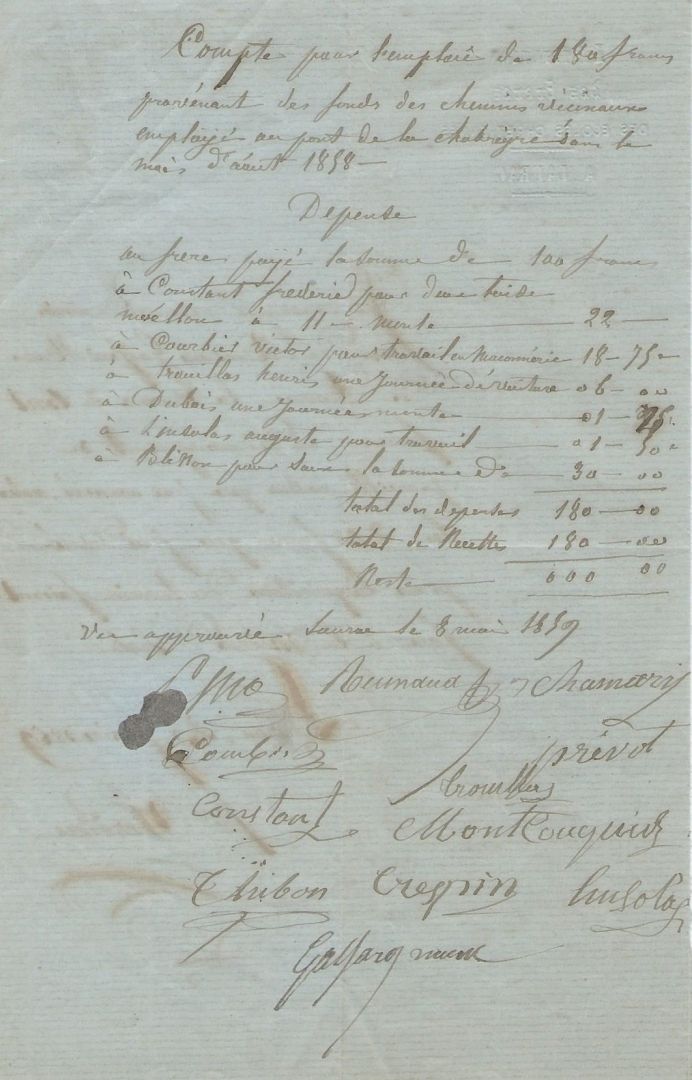 Compte pour l'emploié de 180 francs
provenant des fonds des chemins vicinaux
employé au pont de la chabreyre dans le
mois d'aout 1858 —
Depense
au frere payé la somme de 100 francs
à Constant frederic pour deux toise de
moellon à 11 — monte — 22 —
à Courbier victor pour travail en Maconnerie 18 — 75
à trouillas henri une Journée de voiture 06 — 00
à Dubois une Journée monte — 01 — 75
à Linsolas auguste pour travail — 01 — 50
à pour la somme de 30 — 00
total des depenses 180 — 00
total de Recettes 180 — 00
Reste — 000 00
Vu approuvé le 8 mai 1859
Reynaud
Courbier prévot
Constant trouillas
Thibon Crespin Linsolas